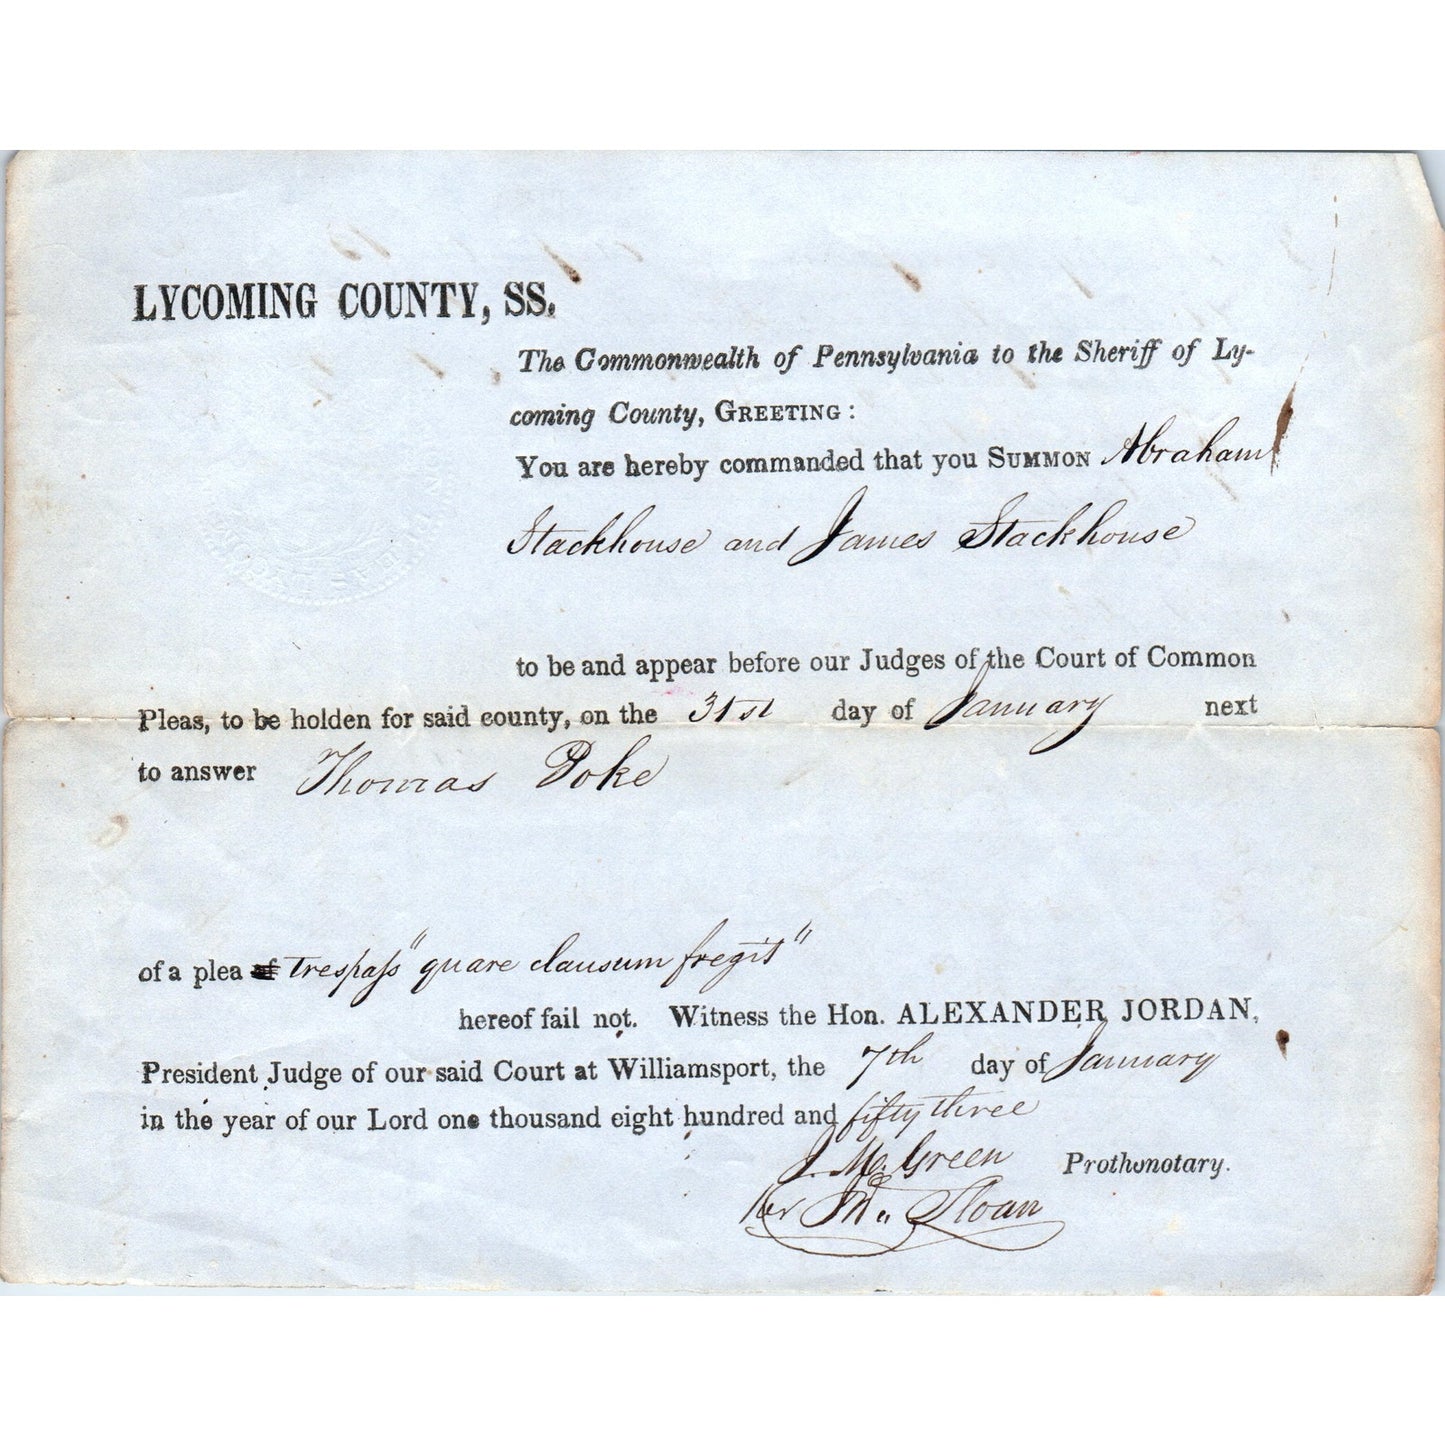 LYCOMING COUNTY, SS.
The Commonwealth of Pennsylvania to the Sheriff of Ly-
coming County, GREETING:
You are hereby commanded that you SUMMON Abraham
Stackhouse and James Stackhouse
to be and appear before our Judges of the Court of Common
Pleas, to be holden for said county, on the 31st day of January next
to answer Thomas Poke
of a plea of trespass "quare clausum fregit"
hereof fail not. Witness the Hon. ALEXANDER JORDAN,
President Judge of our said Court at Williamsport, the 7th day of January
in the year of our Lord one thousand eight hundred and fifty three
J. M. Green Prothonotary.
per Sloan